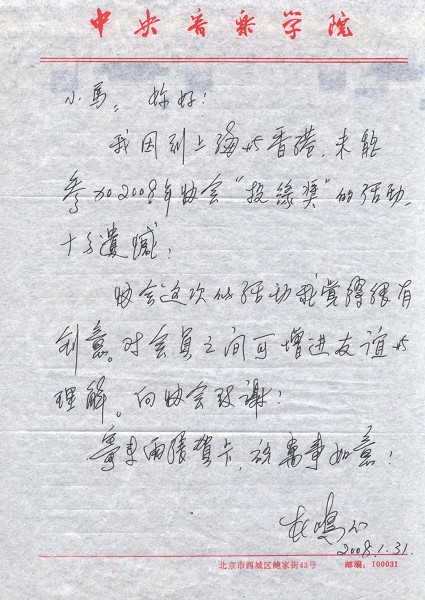 中央音乐学院
小马：你好！
我因到上海与香港，未能
参加2008年协会“投缘奖”的活动，
十分遗憾！
协会这次的活动我觉得很有
创意。对会员之间可增进友谊与
理解。向协会致谢！
寄来两张贺卡，祝万事如意！
杜鸣心
2008.1.31.
北京市西城区鲍家街43号 邮编：100031